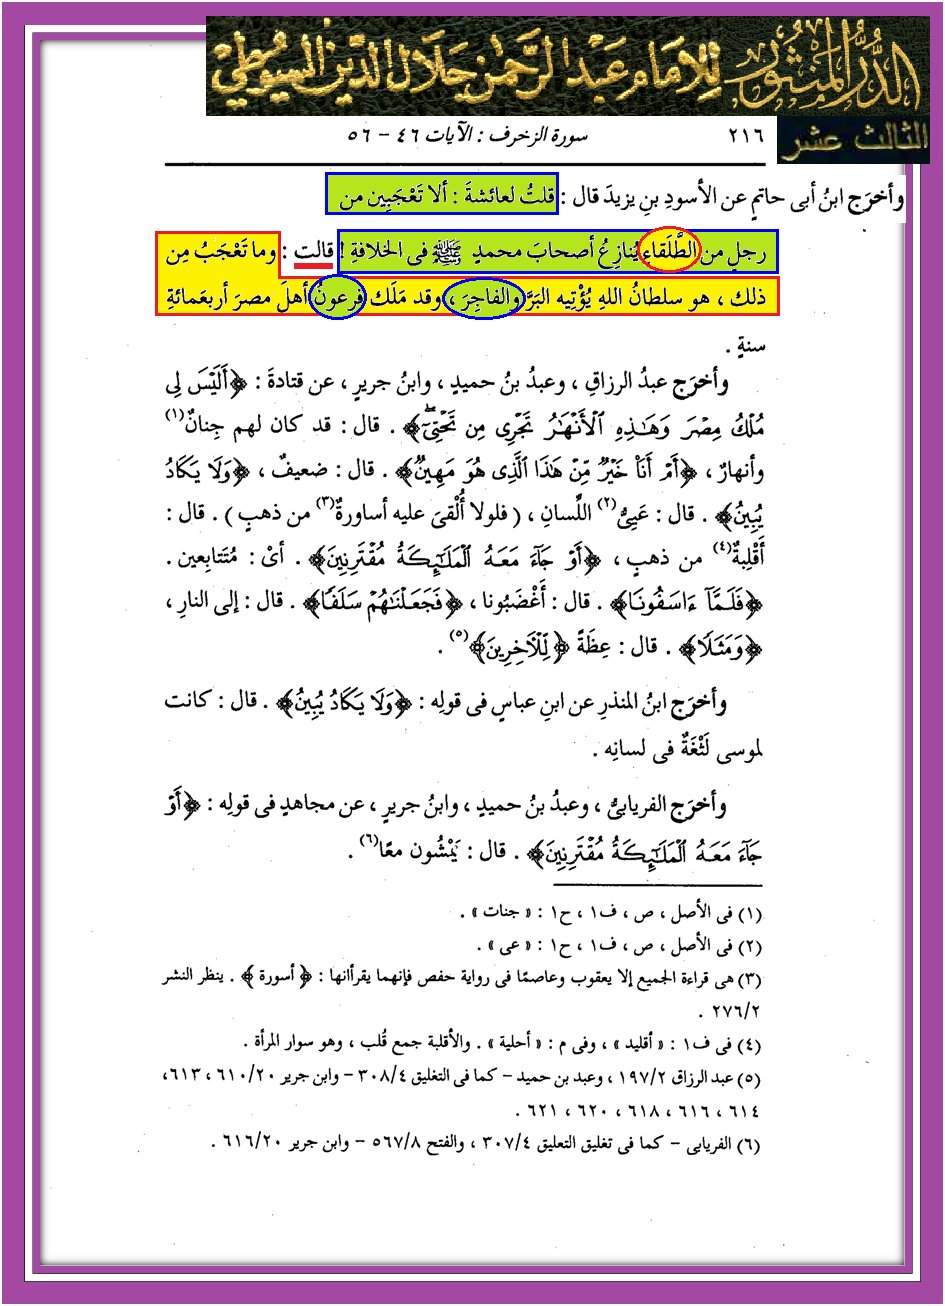 الدُّرُّ المَنثُورُ للإمام عَبْد الرَّحمٰن جَلَال الدّين السيُوطيّ
الثالث عشر
٢١٦ سورة الزخرف : الآيات ٤٦ - ٥٦
وأخرَج ابنُ أبى حاتمٍ عن الأسودِ بنِ يزيدَ قال : قلتُ لعائشةَ : ألا تَعْجَبِين من
رجلٍ من الطُّلَقاءِ يُنازِعُ أصحابَ محمدٍ ﷺ فى الخلافةِ ! قالت : وما تَعْجَبُ مِن
ذلك ، هو سلطانُ اللهِ يُؤْتِيه البَرَّ والفاجِرَ ، وقد مَلَك فرعونُ أهلَ مصرَ أربعَمائةِ
سنةٍ .
وأخرَج عبدُ الرزاقِ ، وعبدُ بنُ حميدٍ ، وابنُ جريرٍ ، عن قتادةَ : ﴿أَلَيْسَ لِى
مُلْكُ مِصْرَ وَهَـٰذِهِ ٱلْأَنْهَـٰرُ تَجْرِى مِن تَحْتِىٓۖ﴾ . قال : قد كان لهم جِنانٌ(١)
وأنهارٌ ، ﴿أَمْ أَنَا۠ خَيْرٌ مِّنْ هَـٰذَا ٱلَّذِى هُوَ مَهِينٌ﴾ . قال : ضعيفٌ ، ﴿وَلَا يَكَادُ
يُبِينُ﴾ . قال : عَيِىُّ(٢) اللِّسانِ ، ( فلولا أُلْقىَ عليه أساورةٌ(٣) من ذهبٍ ) . قال :
أَقْلِبةٌ(٤) من ذهبٍ ، ﴿أَوْ جَآءَ مَعَهُ ٱلْمَلَـٰٓئِكَةُ مُقْتَرِنِينَ﴾ . أىْ : مُتَتابعين .
﴿فَلَمَّآ ءَاسَفُونَا﴾ . قال : أَغْضَبُونا ، ﴿فَجَعَلْنَـٰهُمْ سَلَفًا﴾ . قال : إلى النارِ ،
﴿وَمَثَلًا﴾ . قال : عِظَةً ﴿لِّلْآخِرِينَ﴾(٥) .
وأخرَج ابنُ المنذرِ عن ابنِ عباسٍ فى قولِه : ﴿وَلَا يَكَادُ يُبِينُ﴾ . قال : كانت
لموسى لَثْغَةٌ فى لسانِه .
وأخرَج الفريابىُّ ، وعبدُ بنُ حميدٍ ، وابنُ جريرٍ ، عن مجاهدٍ فى قولِه : ﴿أَوْ
جَآءَ مَعَهُ ٱلْمَلَـٰٓئِكَةُ مُقْتَرِنِينَ﴾ . قال : يَمْشُون معًا(٦) .
(١) فى الأصل ، ص ، ف١ ، ح١ : « جنات » .
(٢) فى الأصل ، ص ، ف١ ، ح١ : « عى » .
(٣) هى قراءة الجميع إلا يعقوب وعاصمًا فى رواية حفص فإنهما يقرأانها : ﴿ أسورة ﴾ . ينظر النشر
٢٧٦/٢ .
(٤) فى ف١ : « أقليد » ، وفى م : « أحلية » . والأقلبة جمع قُلب ، وهو سوار المرأة .
(٥) عبد الرزاق ١٩٧/٢ ، وعبد بن حميد - كما فى التغليق ٣٠٨/٤ - وابن جرير ٦١٠/٢٠ ، ٦١٣ ،
٦١٤ ، ٦١٦ ، ٦١٨ ، ٦٢٠ ، ٦٢١ .
(٦) الفريابى - كما فى تغليق التعليق ٣٠٧/٤ ، والفتح ٥٦٧/٨ - وابن جرير ٦١٦/٢٠ .